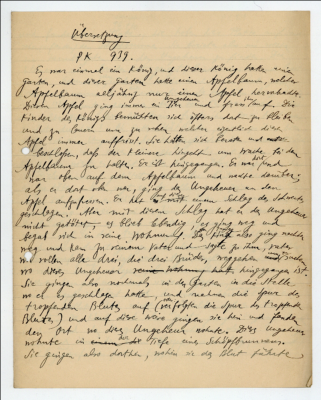 Übersetzung
PK 939.
Es war einmal ein König, und dieser König hatte einen
Garten, und dieser Garten hatte einen Apfelbaum, welcher
Apfelbaum alljährig nur einen Apfel hervorbrachte.
Diesen Apfel ging immer ein Ungeheuer und frass ihn auf. Die
Kinder des Königs bemühten sich öfters dort zu bleiben
und zu lauern um zu sehen welcher eigentlich diesen
Apfel immer auffrisst. Sie hatten sich beraten und
beschlossen, dass der kleinste, jüngste um Wache bei dem
Apfelbaum zu halten. Er ist hingegangen. Er war
oben auf dem Apfelbaum und wachte darüber;
als er dort oben war, ging das Ungeheuer an den
Apfel aufzufressen. Er hat mit einem Schlag des Schwertes
geschlagen. Aber mit diesem Schlag hat er das Ungeheuer
nicht getötet, es blieb lebendig, es ging weg und
begab sich in seine Wohnung. Er ging also nachts
weg und kam zu seinem Vater und sagte zu ihm, Vater
wir wollen alle drei, die drei Brüder, weggehen und
wo dieses Ungeheuer hingegangen ist.
Sie gingen also nochmals in den Garten an die Stelle
wo er es geschlagen hatte und nahmen die Spur des
tropfenden Blutes auf (verfolgten die Spur des tropfenden
Blutes) und auf diese Weise gingen sie hin und fanden
den Ort wo dieses Ungeheuer wohnte. Dieses Ungeheuer
wohnte in der Tiefe eines Schöpfbrunnens.
Sie gingen also dorthin, wohin sie das Blut führte